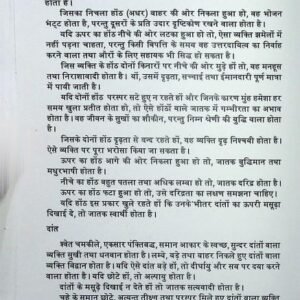 जिसका निचला होंठ (अधर) बाहर की ओर निकला हुआ हो, वह भोजन
भट्ट होता है, परन्तु दूसरों के प्रति उदार दृष्टिकोण रखने वाला होता है।
यदि ऊपर का होंठ नीचे की ओर लटका हुआ हो तो, ऐसा व्यक्ति झमेलों में
नहीं पड़ना चाहता, परन्तु किसी विपत्ति के समय वह उत्तरदायित्व का निर्वाह
करने वाला तथा औरों के लिए सहायक भी सिद्ध हो सकता है।
जिस व्यक्ति के होंठ दोनों किनारों पर नीचे की ओर मुड़े हों तो, वह मनहूस
तथा निराशावादी होता है। यों, उसमें दृढ़ता, सच्चाई तथा ईमानदारी पूर्ण मात्रा
में पायी जाती है।
यदि दोनों होंठ परस्पर सटे हुए न रहते हों और जिनके कारण मुंह हमेशा हर
समय खुला प्रतीत होता हो तो, ऐसे होंठों वाले जातक में गम्भीरता का अभाव
होता है। वह जीवन के सुखों का शौकीन, परन्तु निम्न श्रेणी की बुद्धि वाला होता
है।
जिसके दोनों होंठ दृढ़ता से बन्द रहते हों, वह व्यक्ति दृढ़ निश्चयी होता है।
ऐसे व्यक्ति पर पूरा भरोसा किया जा सकता है।
ऊपर का होंठ आगे की ओर निकला हुआ हो तो, जातक बुद्धिमान तथा
मधुरभाषी होता है।
नीचे का होंठ बहुत पतला तथा अधिक लम्बा हो तो, जातक दरिद्र होता है।
ऊपर का होंठ फटा हुआ हो तो, उसे दरिद्रता का लक्षण समझना चाहिए।
यदि होंठ इस प्रकार खुले रहते हों कि उनके भीतर दांतों का ऊपरी मसूढ़ा
दिखाई दे, तो जातक स्वार्थी होता है।
दांत
श्वेत चमकीले, एकसार पंक्तिबद्ध, समान आकार के स्वच्छ, सुन्दर दांतों वाला
व्यक्ति सुखी तथा धनवान होता है। लम्बे, बड़े तथा बाहर निकले हुए दांतों वाला
व्यक्ति विद्वान होता है। यदि ऐसे दांत बड़े हों तो, दीर्घायु और सब पर दया करने
वाला होता है। यदि छोटे हों, तो अल्पायु होता है।
दांतों के मसूढ़े दिखाई न देते हों तो, जातक
चूहे के समान छोटे, अत्यन्त तीक्ष्ण तथा परस्पर मिले हुए दांतों वाला